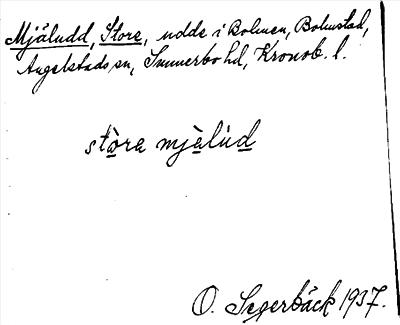 Mjäludd, Store, udde i Bolmen, Bolmstad,
Angelstads sn, Sunnerbo hd, Kronob. l.
stòra mjàlúd
O. Segerbäck 1937.